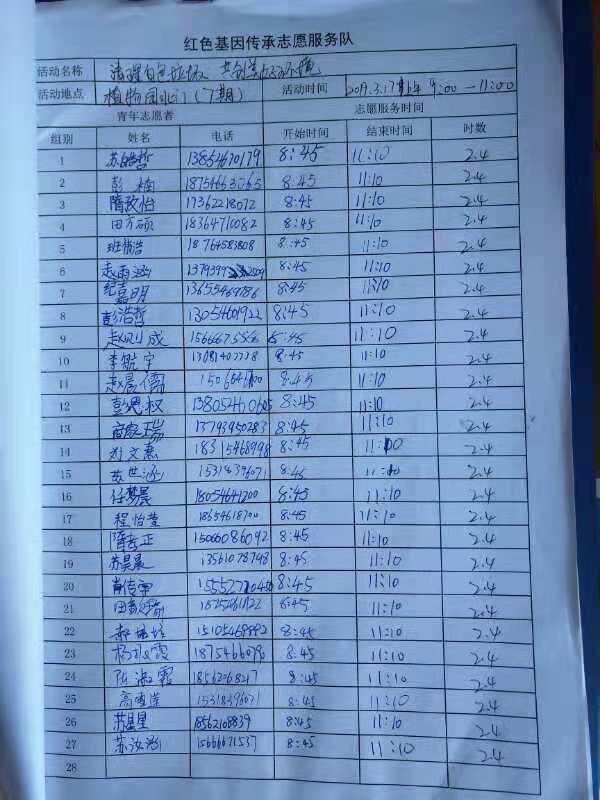 红色基因传承志愿服务队
活动名称 清理白色垃圾 共创美好环境
活动地点 植物园北门(7期) 活动时间 2019.3.17 9:00—11:00
青年志愿者 志愿服务时间
组别 姓名 电话 开始时间 结束时间 时数
1 苏皓哲 13854670179 8:45 11:10 2.4
2 彭楠 18754663065 8:45 11:10 2.4
3 隋政怡 17362218072 8:45 11:10 2.4
4 田方硕 18364710082 8:45 11:10 2.4
5 18764583808 8:45 11:10 2.4
6 赵雨涵 8:45 11:10 2.4
7 纪嘉明 13655469786 8:45 11:10 2.4
8 彭浩哲 13054601922 8:45 11:10 2.4
9 11:10 2.4
10 李航宇 8:45 11:10 2.4
11 赵晨儒 8:45 11:10 2.4
12 彭思权 8:45 11:10 2.4
13 13793950283 8:45 11:10 2.4
14 刘文惠 18315468998 8:45 11:10 2.4
15 苏世涵 8:45 11:10 2.4
16 任梦晨 18054641200 8:45 11:10 2.4
17 程怡莹 18654618700 8:45 11:10 2.4
18 15066086092 8:45 11:10 2.4
19 苏昊晨 13561078748 8:45 11:10 2.4
20 8:45 11:10 2.4
21 8:45 11:10 2.4
22 15105469992 8:45 11:10 2.4
23 8:45 11:10 2.4
24 陈淑霞 18562106827 8:45 11:10 2.4
25 8:45 11:10 2.4
26 苏星星 18562108839 8:45 11:10 2.4
27 15666671537 8:45 11:10 2.4
28